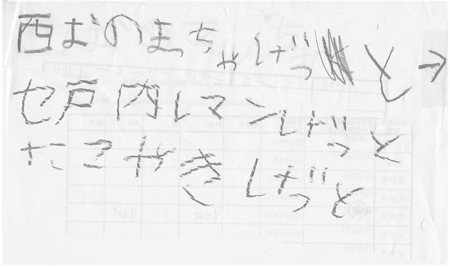 西おのまちゃげっと→
セ戸内レマンげっと
たこやきげっと